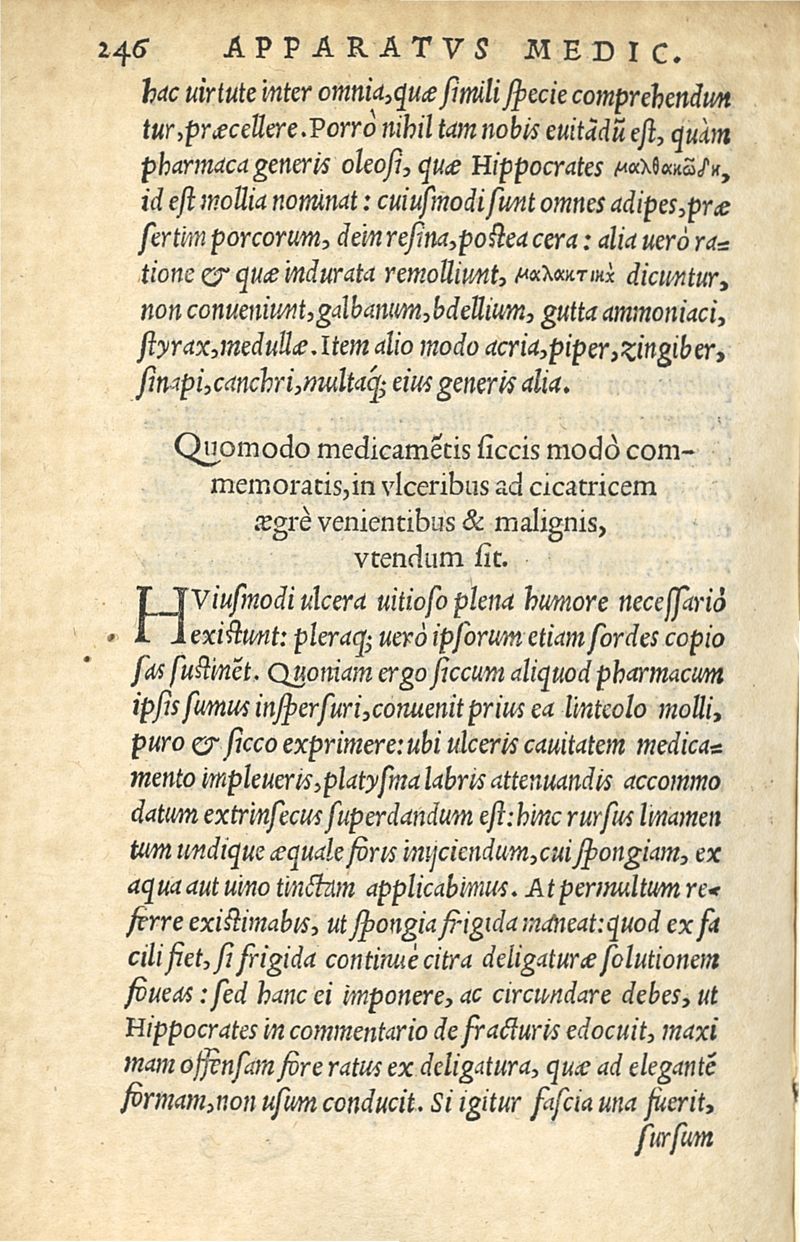 246 APPARATVS MEDIC.
hac uirtute inter omnia, quæ simili specie comprehendun
tur, præcellere. Porrò nihil tam nobis euitãdũ est, quàm
pharmaca generis oleosi, quæ Hippocrates μαλθακώδη,
id est mollia nominat: cuiusmodi sunt omnes adipes, præ
sertim porcorum, dein resina, postea cera: alia uerò ra=
tione & quæ indurata remolliunt, μαλακτικὰ dicuntur,
non conueniunt, galbanum, bdellium, gutta ammoniaci,
styrax, medullæ. Item alio modo acria, piper, zingiber,
sinapi, canchri, multaq́; eius generis alia.
Quomodo medicamẽtis siccis modò com-
memoratis, in vlceribus ad cicatricem
ægrè venientibus & malignis,
vtendum sit.
HViusmodi ulcera uitioso plena humore necessariò
existunt: pleraq; uerò ipsorum etiam sordes copio
sas sustinẽt. Quoniam ergo siccum aliquod pharmacum
ipsis sumus inspersuri, conuenit prius ea linteolo molli,
puro & sicco exprimere: ubi ulceris cauitatem medica=
mento impleueris, platysma labris attenuandis accommo
datum extrinsecus superdandum est: hinc rursus linamen
tum undique æquale foris inijciendum, cui spongiam, ex
aqua aut uino tinctam applicabimus. At permultum re-
ferre existimabis, ut spongia frigida maneat: quod ex fa
cili fiet, si frigida continuè citra deligaturæ solutionem
foueas: sed hanc ei imponere, ac circundare debes, ut
Hippocrates in commentario de fracturis edocuit, maxi
mam offensam fore ratus ex deligatura, quæ ad elegantẽ
formam, non usum conducit. Si igitur fascia una fuerit,
sursum